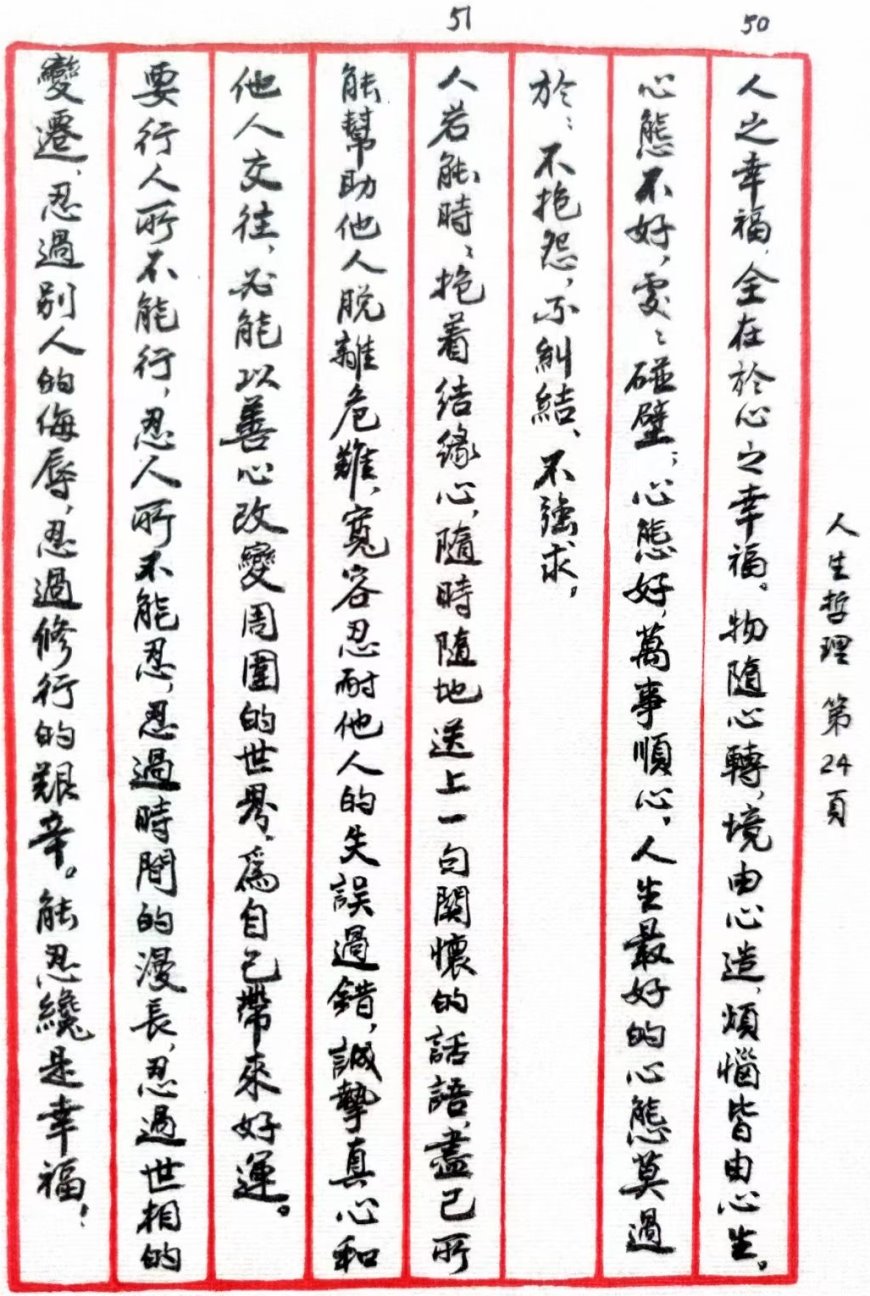 人生哲理 第24頁
50
人之幸福，全在於心之幸福。物隨心轉，境由心造，煩惱皆由心生。
心態不好，處處碰壁；心態好，萬事順心，人生最好的心態莫過
於：不抱怨，不糾結、不強求，
51
人若能時時抱着结缘心，隨時隨地送上一句關懷的話語，盡己所
能幫助他人脱離危難，寬容忍耐他人的失誤過錯，誠摯真心和
他人交往，必能以善心改變周圍的世界，爲自己帶來好運。
要行人所不能行，忍人所不能忍，忍過時間的漫長，忍過世相的
變遷，忍過别人的侮辱，忍過修行的艱辛。能忍纔是幸福！